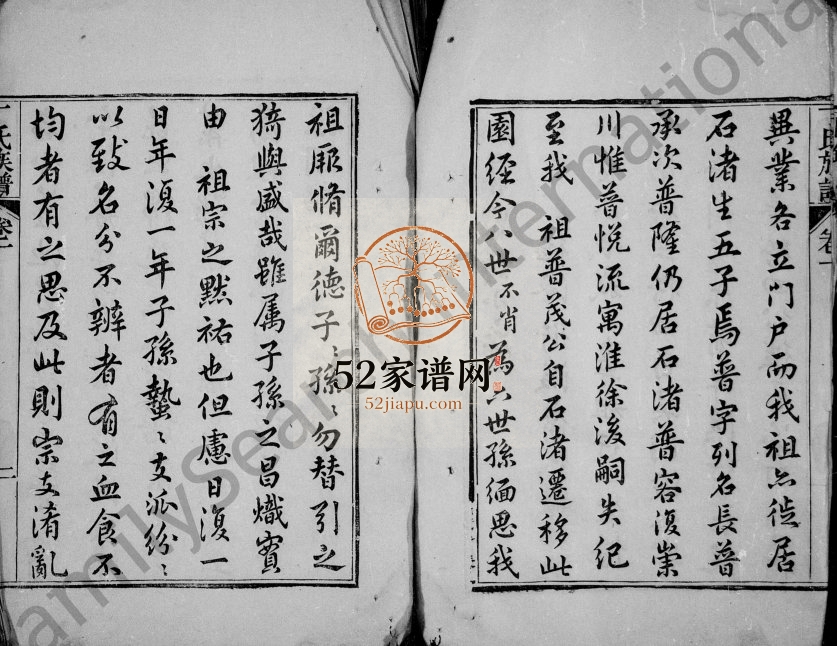 異業各立門户而我祖亦徙居
石渚生五子焉普字列名長普
承次普隆仍居石渚普容復崇
川惟普悦流寓淮徐後嗣失紀
至我 祖普茂公自石渚遷移此
園經今八世不肖為六世孫緬思我
祖厥脩爾德子〻孫〻勿替引之
猗與盛哉雖属子孫之昌熾實
由 祖宗之黙祐也但慮日復一
日年復一年子孫蟄〻支派紛〻
以致名分不辨者有之血食不
均者有之思及此則宗支淆亂
氏族譜 卷一
氏族譜 卷一 二
52家谱网
52jiapu.com
FamilySearch International